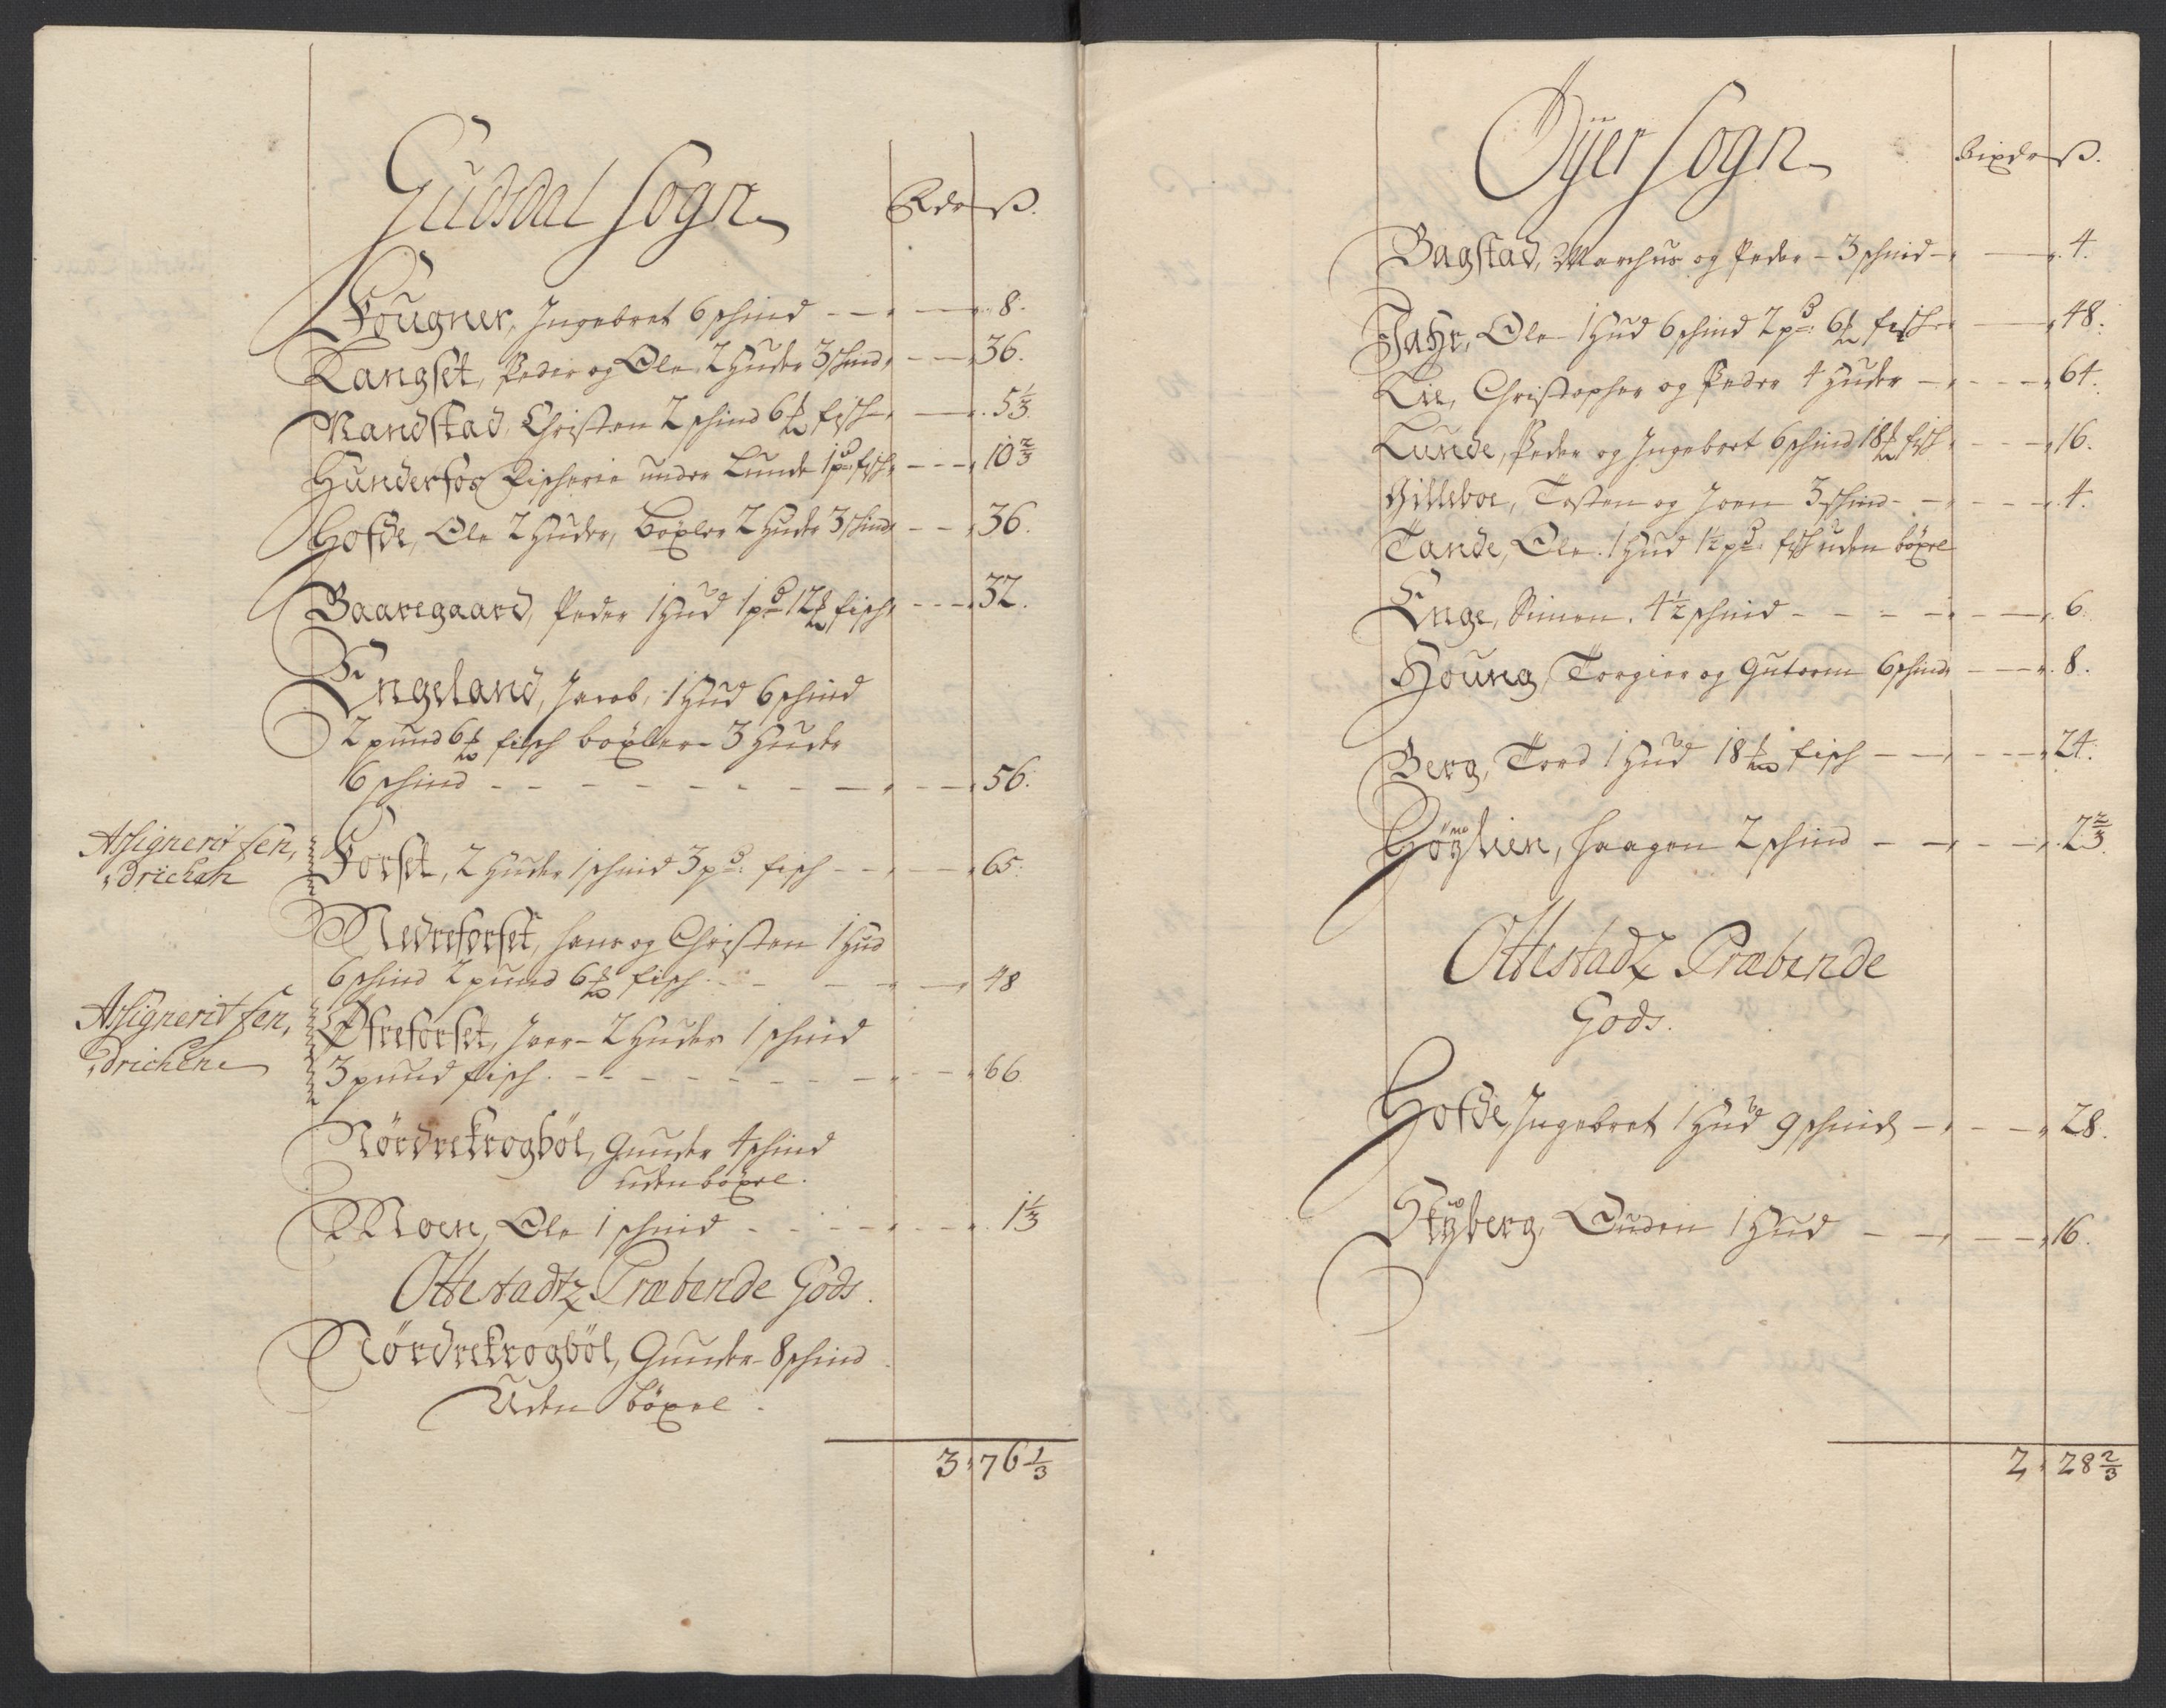 Gudsdal Sogn
Rdr ß.
Fougner, Ingebret 6 schind - - - 8.
Langset, Peder og Ole 2 Huder 3 schind - - 36.
Randstad, Christen 2 schind 6 ℔ fisch - - 5 1/3.
Hunderfos Fischerie under Lunde 1 pd: fisch - - - 10 2/3
Hofde, Ole 2 Huder, boxler 2 Huder 3 schind - - 36.
Baaregaard, Peder 1 Hud 1 pd 12 ℔ fisch - - - 32.
Engeland, Jacob, 1 Hud 6 schind
2 pund 6 ℔ fisch boxler 3 Huder
6 schind - - - - - - - - 56.
Assignerit fen,
drichen
Forset, 2 Huder 1 schind 3 pd: fisch - - - 65.
Nedreforset, Hans og Christen 1 Hud
6 schind 2 pund 6 ℔ fisch - - - - 48
Assignerit fen,
drichene
Øfreforset, Iver 2 Huder 1 schind
3 pund fisch. - - - - - - - - 66
Nördrekrogböl, Gunder 4 schind
uden böxel.
Moen, Ole 1 schind - - - - - - 1 1/3
Ottestadtz Præbende Gods.
Nördrekrogböl, Gunder 8 schind
Uden böxel.
3 76 1/3
Öyer Sogn
Rixdr ß.
Bagstad, Marchus og Peder - 3 schind - - 4.
Jahr, Ole 1 Hud 6 schind 2 pd: 6 ℔ fisch - - 48.
Lie, Christopher og Peder 4 Huder - - - - 64.
Lunde, Peder og Ingebret 6 schind 18 ℔ fisch - - - 16.
Gilleboe, Tosten og Joen 3 schind - - - - 4.
Tande, Ole 1 Hud 1 1/2 pd: fisch uden böxel
Enge, Simen. 4 1/2 schind - - - - - - 6.
Houng, Torgier og Gutorm 6 schind - - 8.
Berg, Tord 1 Hud 18 ℔ fisch - - - - 24.
Höÿlien, Haagen 2 schind - - - - 2 2/3.
Ottestadz Præbende
Gods.
Hofde, Ingebret 1 Hud 9 schind - - - 28.
Skÿberg, Ouden 1 Hud - - - - 16.
2 28 2/3